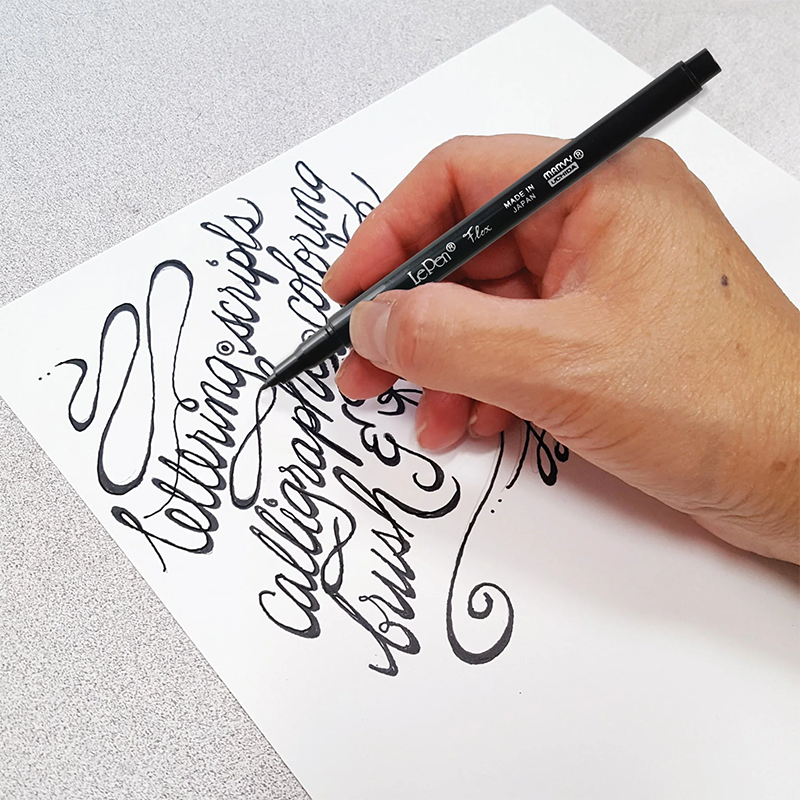 lettering • scripts
calligraphy • coloring
brush &
LePen® Flex
MADE IN
JAPAN
marvy®
UCHIDA